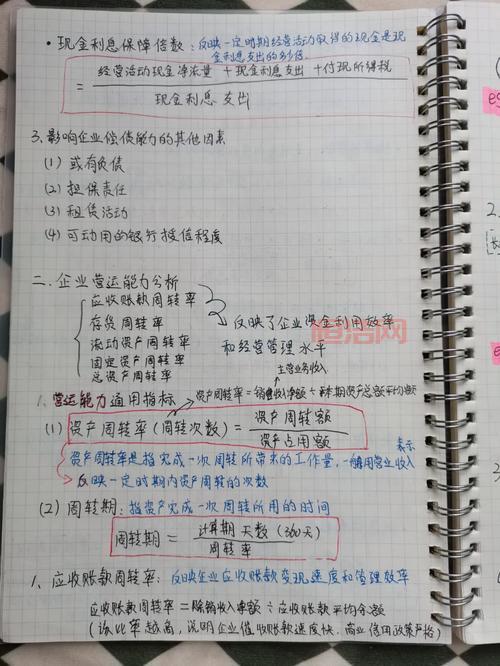 · 现金利息保障倍数：反映一定时期经营活动取得的现金是现
金利息支出的多少倍.
= 经营活动现金净流量 + 现金利息支出 + 付现所得税
现金利息支出
3.影响企业偿债能力的其他因素
(1) 或有负债
(2) 担保责任
(3) 租赁活动
(4) 可动用的银行授信程度
二.企业营运能力分析
应收账款周转率
存货周转率
流动资产周转率
固定资产周转率
总资产周转率
反映了企业资金利用效率
和经营管理水平
恒洁网
主营业务收入
1.营运能力通用指标
资产周转率=销售收入净额÷本期资产总额平均数
(1) 资产周转率(周转次数) = 资产周转额
资产占用额
表示
资产周转率是指完成一次周转所带来的工作量,一般用营业收入
反映一定时期内资产周转的次数
(2) 周转期：指资产完成一次周转所用的时间
周转期 = 计算期天数(360天)
周转率
1、应收账款周转率：反映企业应收账款变现速度和管理效率
应收账款周转率=赊销收入净额÷应收账款平均余额
(该比率越高,说明企业催收账款速度快,商业信用政策严格)
eg
2.